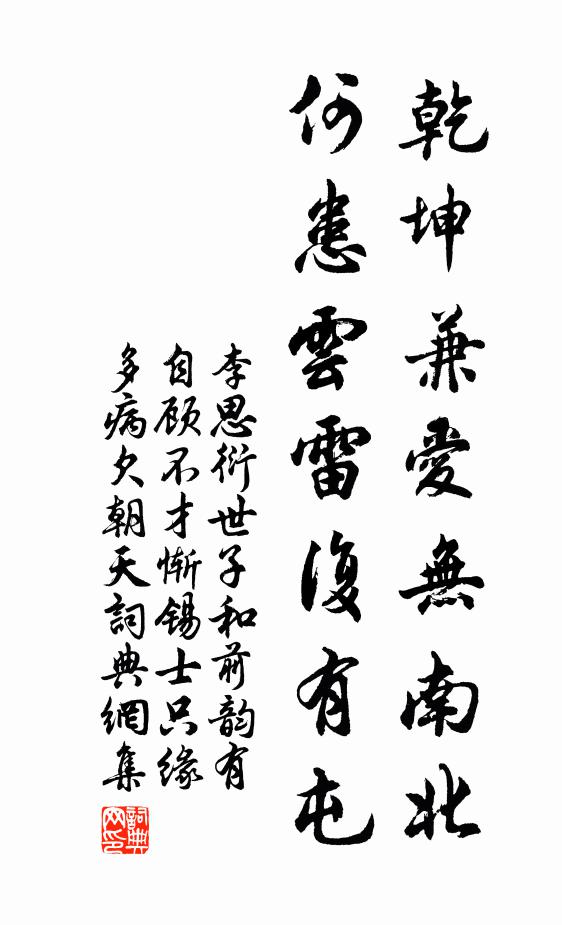 乾坤兼愛無南北
何患雲雷復有屯
李思衍世子和前韵有
自顾不才惭锡士只緣
多病欠朝天詞典網集
詞典網印